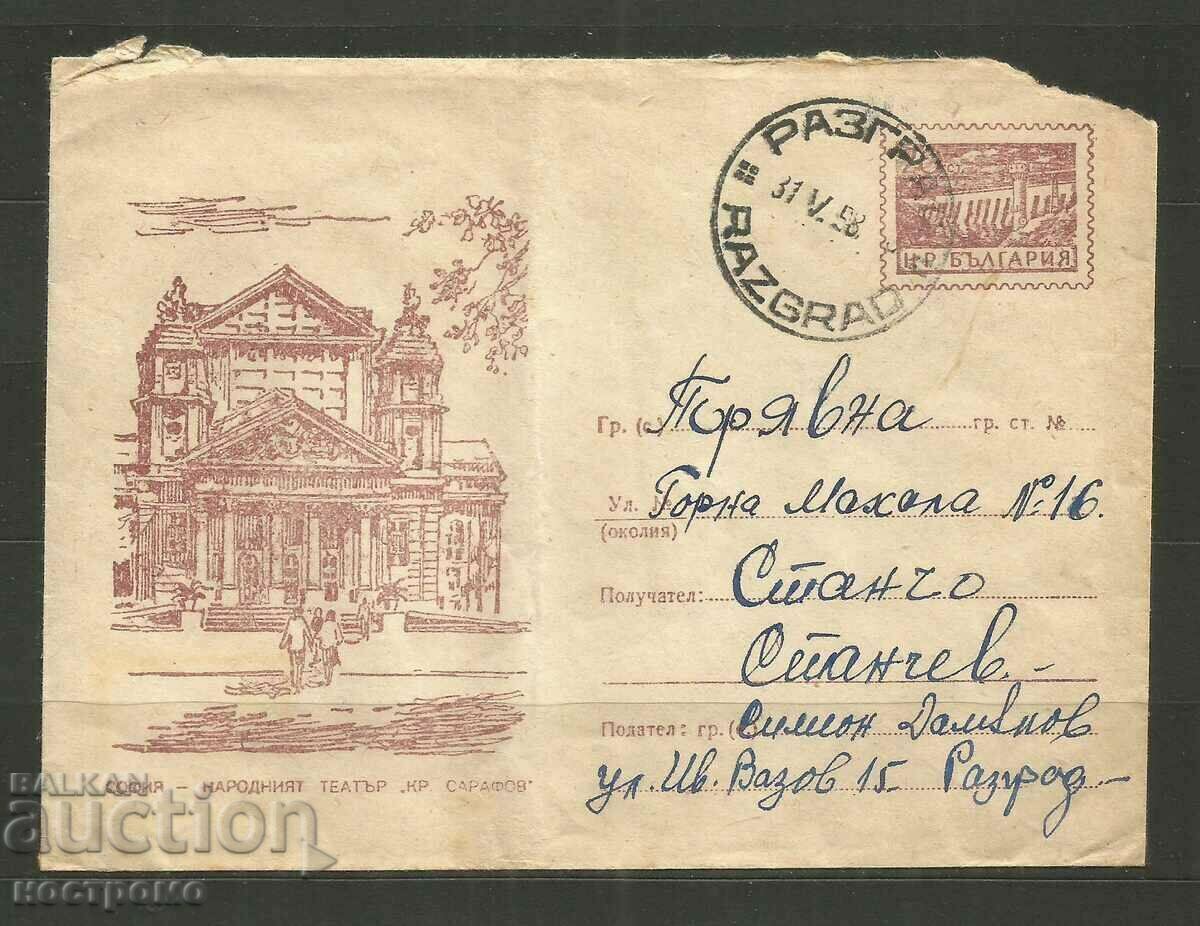 РАЗГРАД
31 V. 58
RAZGRAD
Н.Р. БЪЛГАРИЯ
Гр. (с.) Трявна гр. ст. №
Ул. № Горна Махала № 16.
(околия)
Получател: Станчо
Станчев –
Подател: гр. (с.) Симион Дамянов
ул. Ив. Вазов 15 Разград –
СОФИЯ – НАРОДНИЯТ ТЕАТЪР „КР. САРАФОВ"
BALKAN
auction
ностромо